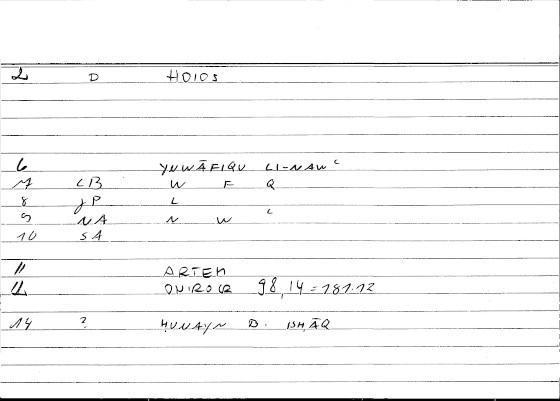 2 D HOIOS
6 YNWĀFIQU LI-NAWʿ
7 LB W F Q
8 JP L
9 NA N W ʿ
10 SA
11 ARTEM
12 ONIROCR 98,14 = 181.12
14 ? ḤUNAYN B. ISḤĀQ